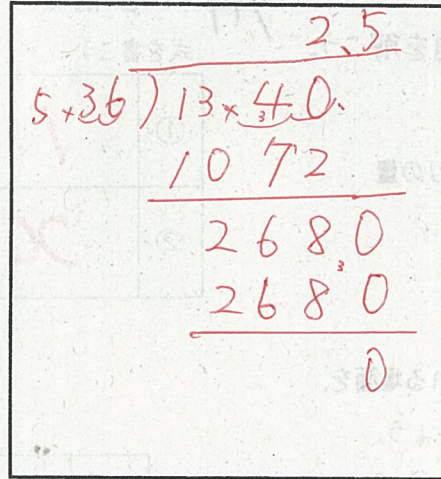 2.5
5.36)13.40.
1072
2680
2680
0